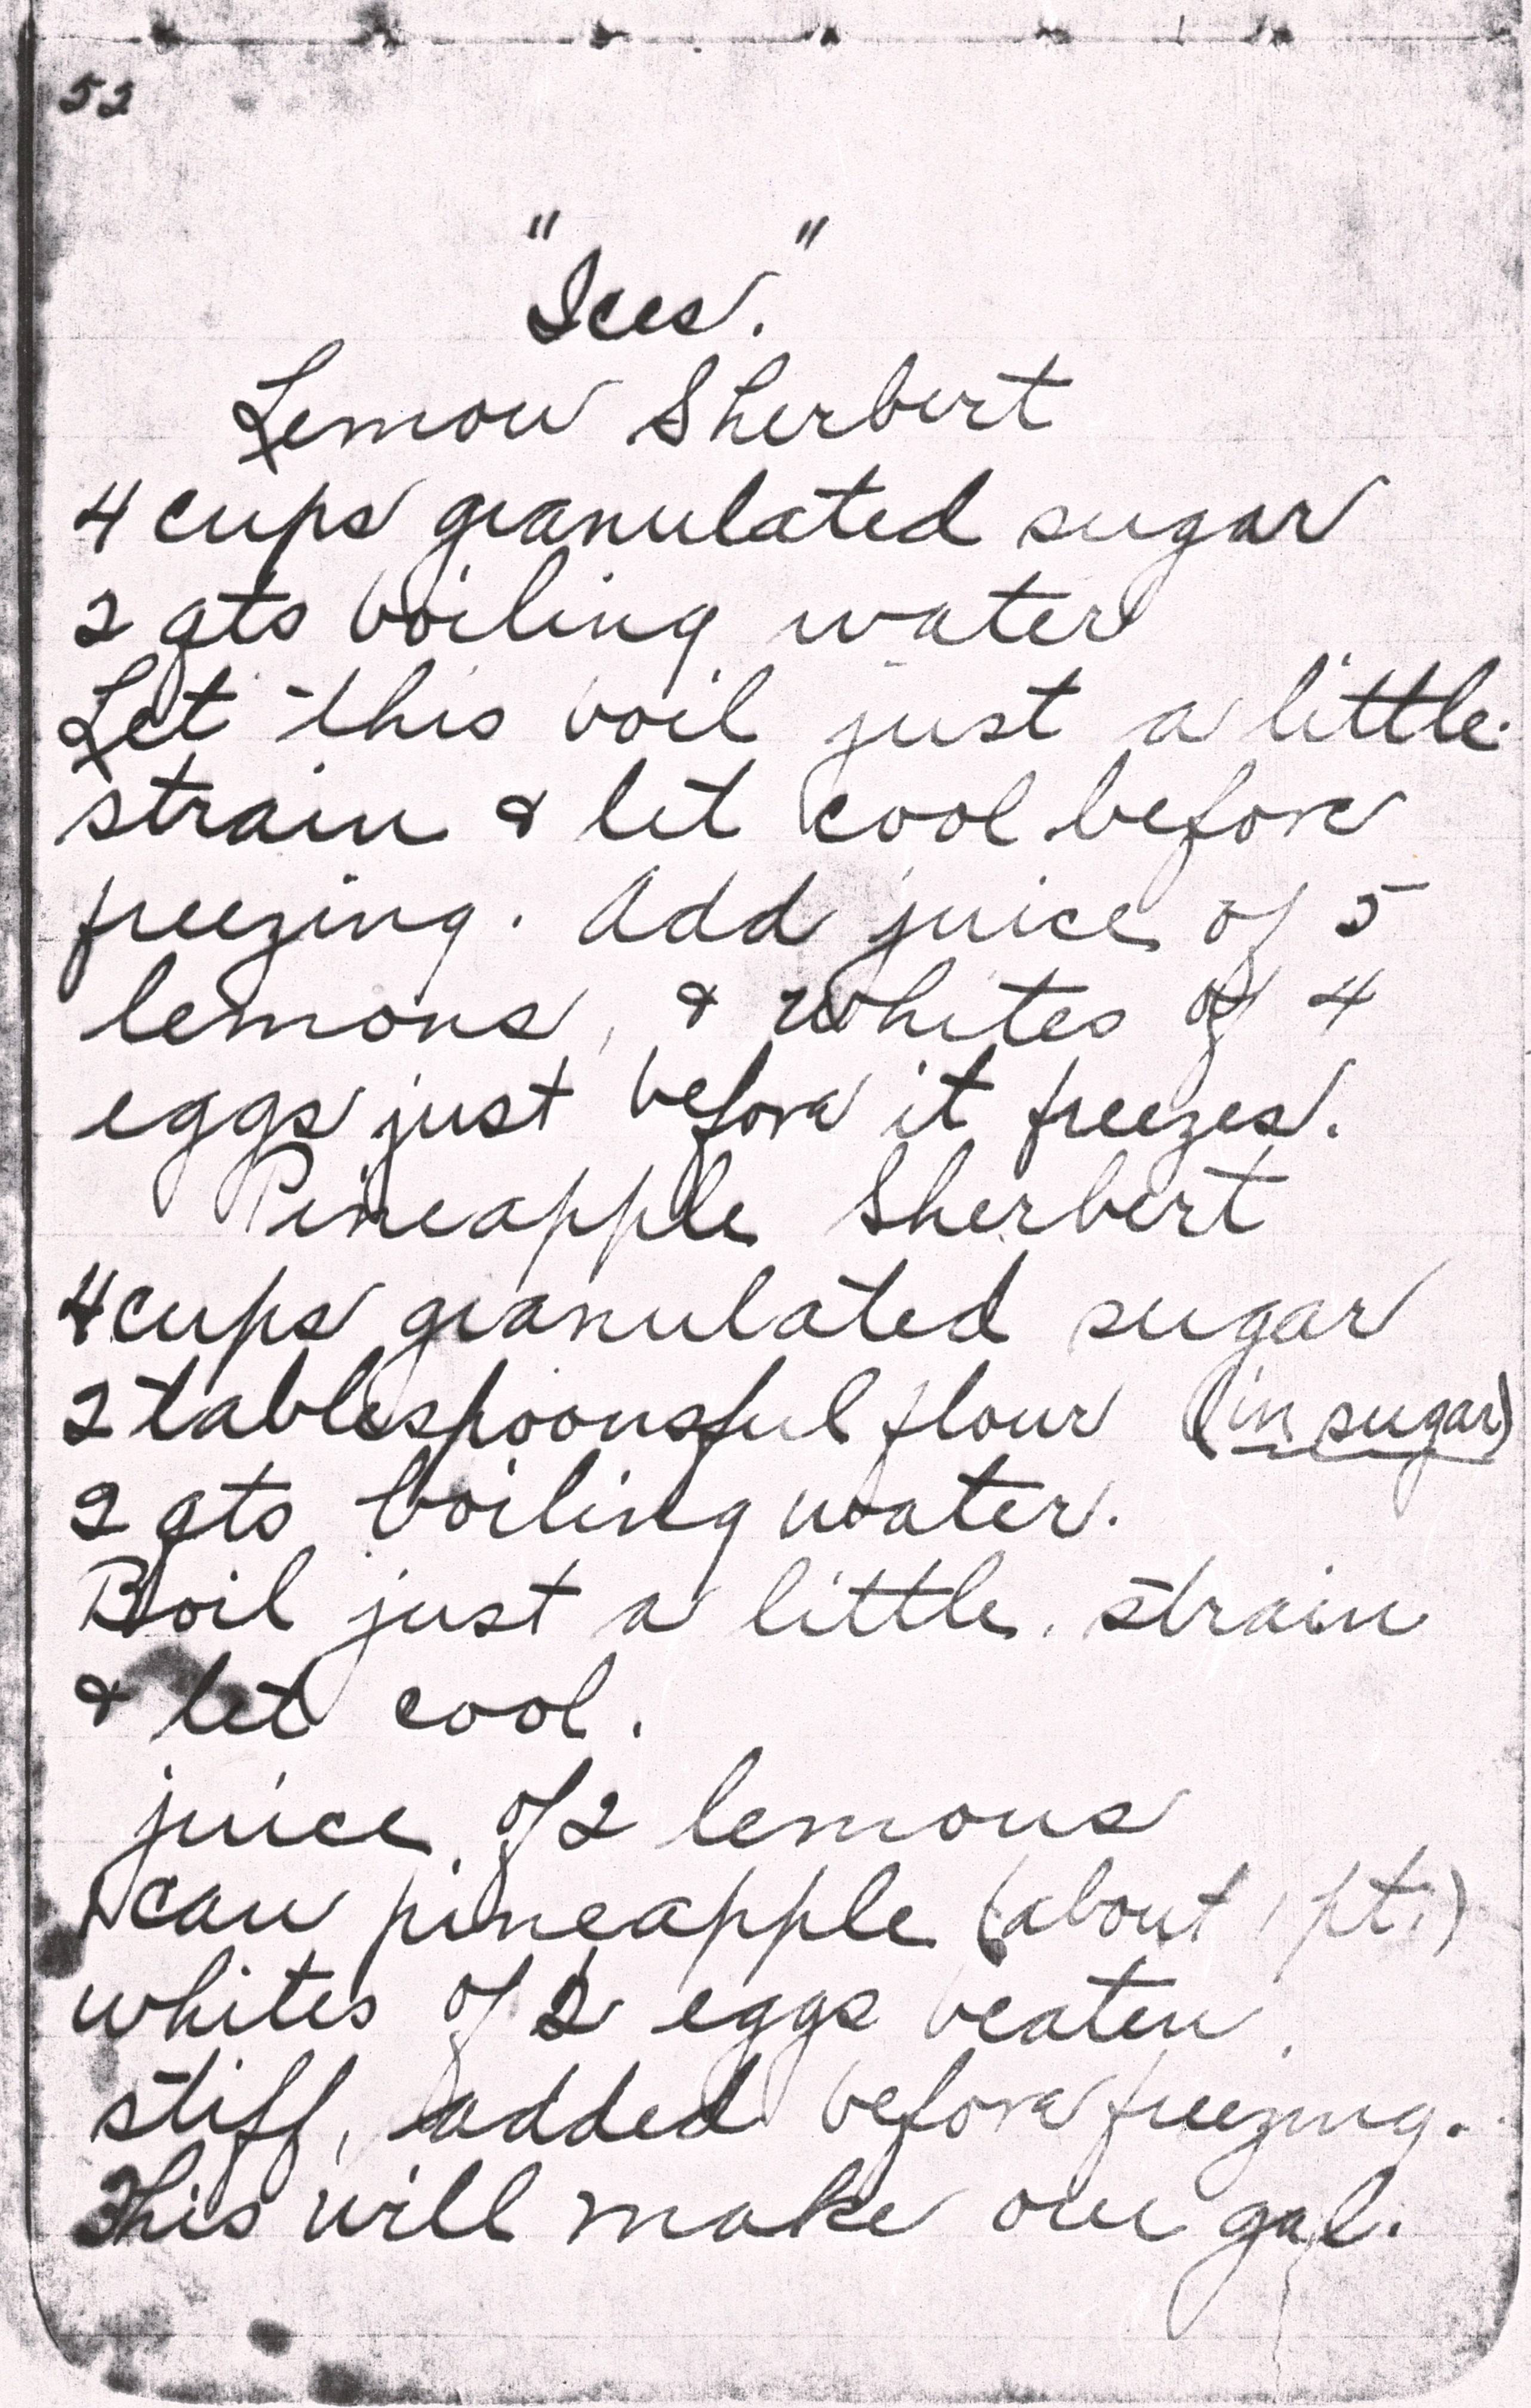 52
"Ices."
Lemon Sherbert
4 cups granulated sugar
2 qts boiling water
Let this boil just a little.
strain & let cool before
freezing. Add juice of 5
lemons, & whites of 4
eggs just before it freezes.
Pineapple Sherbert
4 cups granulated sugar
2 tablespoonsful flour (in sugar)
2 qts boiling water.
Boil just a little, strain
& let cool.
juice of 2 lemons
1 can pineapple (about 1 pt.)
whites of 2 eggs beaten
stiff, added before freezing.
This will make one gal.